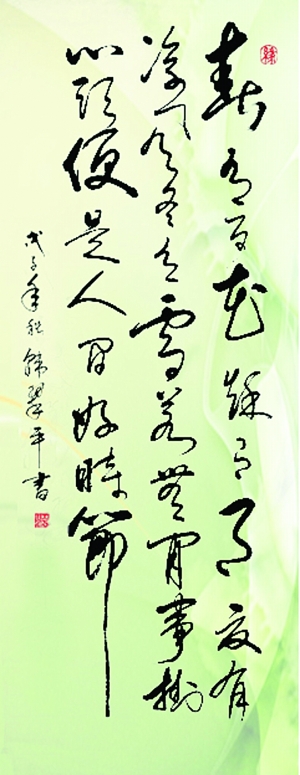 春有百花穐有月夏有
涼風冬有雪若無閒事掛
心頭便是人間好時節
戊子年秋韓翠平書